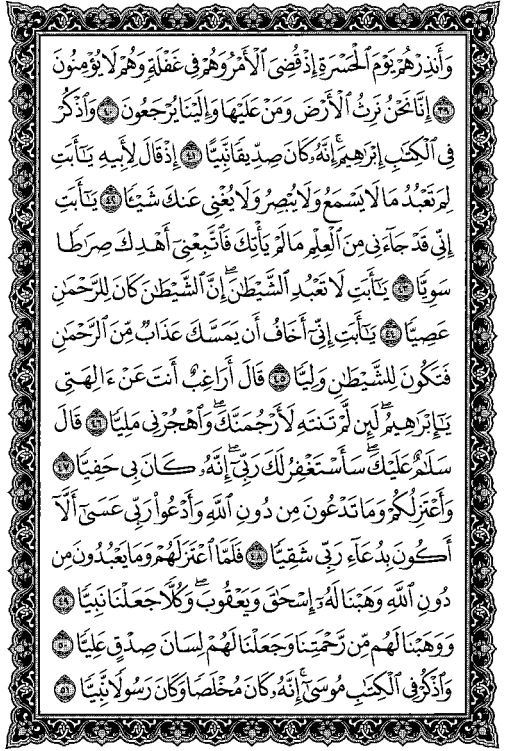 وَأَنذِرْهُمْ يَوْمَ ٱلْحَسْرَةِ إِذْ قُضِىَ ٱلْأَمْرُ وَهُمْ فِى غَفْلَةٍ وَهُمْ لَا يُؤْمِنُونَ
٣٩ إِنَّا نَحْنُ نَرِثُ ٱلْأَرْضَ وَمَنْ عَلَيْهَا وَإِلَيْنَا يُرْجَعُونَ ٤٠ وَٱذْكُرْ
فِى ٱلْكِتَٰبِ إِبْرَٰهِيمَ ۚ إِنَّهُۥ كَانَ صِدِّيقًا نَّبِيًّا ٤١ إِذْ قَالَ لِأَبِيهِ يَٰٓأَبَتِ
لِمَ تَعْبُدُ مَا لَا يَسْمَعُ وَلَا يُبْصِرُ وَلَا يُغْنِى عَنكَ شَيْـًٔا ٤٢ يَٰٓأَبَتِ
إِنِّى قَدْ جَآءَنِى مِنَ ٱلْعِلْمِ مَا لَمْ يَأْتِكَ فَٱتَّبِعْنِىٓ أَهْدِكَ صِرَٰطًا
سَوِيًّا ٤٣ يَٰٓأَبَتِ لَا تَعْبُدِ ٱلشَّيْطَٰنَ ۖ إِنَّ ٱلشَّيْطَٰنَ كَانَ لِلرَّحْمَٰنِ
عَصِيًّا ٤٤ يَٰٓأَبَتِ إِنِّىٓ أَخَافُ أَن يَمَسَّكَ عَذَابٌ مِّنَ ٱلرَّحْمَٰنِ
فَتَكُونَ لِلشَّيْطَٰنِ وَلِيًّا ٤٥ قَالَ أَرَاغِبٌ أَنتَ عَنْ ءَالِهَتِى
يَٰٓإِبْرَٰهِيمُ ۖ لَئِن لَّمْ تَنتَهِ لَأَرْجُمَنَّكَ ۖ وَٱهْجُرْنِى مَلِيًّا ٤٦ قَالَ
سَلَٰمٌ عَلَيْكَ ۖ سَأَسْتَغْفِرُ لَكَ رَبِّىٓ ۖ إِنَّهُۥ كَانَ بِى حَفِيًّا ٤٧
وَأَعْتَزِلُكُمْ وَمَا تَدْعُونَ مِن دُونِ ٱللَّهِ وَأَدْعُوا۟ رَبِّى عَسَىٰٓ أَلَّآ
أَكُونَ بِدُعَآءِ رَبِّى شَقِيًّا ٤٨ فَلَمَّا ٱعْتَزَلَهُمْ وَمَا يَعْبُدُونَ مِن
دُونِ ٱللَّهِ وَهَبْنَا لَهُۥٓ إِسْحَٰقَ وَيَعْقُوبَ ۖ وَكُلًّا جَعَلْنَا نَبِيًّا ٤٩
وَوَهَبْنَا لَهُم مِّن رَّحْمَتِنَا وَجَعَلْنَا لَهُمْ لِسَانَ صِدْقٍ عَلِيًّا ٥٠
وَٱذْكُرْ فِى ٱلْكِتَٰبِ مُوسَىٰٓ ۚ إِنَّهُۥ كَانَ مُخْلَصًا وَكَانَ رَسُولًا نَّبِيًّا ٥١